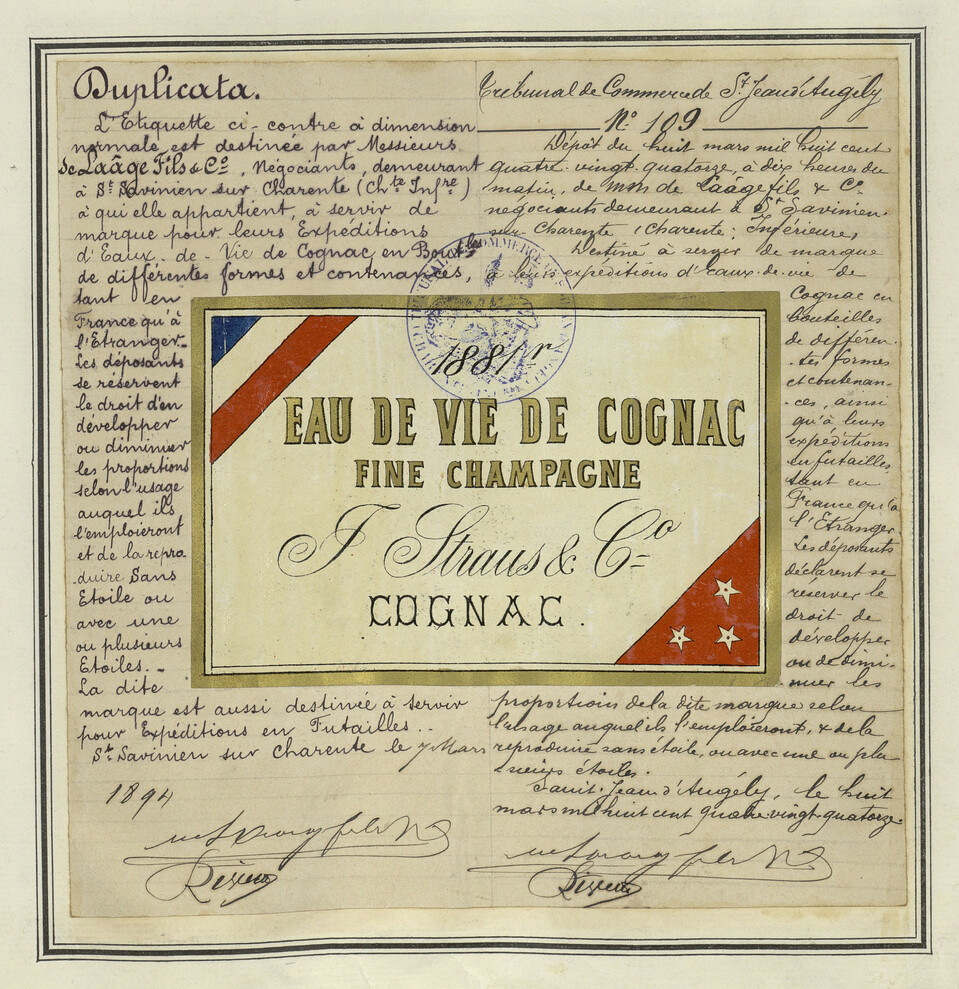 Duplicata.
L'Etiquette ci-contre à dimension
normale est destinée par Messieurs
de Laâge Fils & Co, Négociants, demeurant
à St Savinien sur Charente (Chte Infre)
à qui elle appartient, à servir de
marque pour leurs Expéditions
d'Eaux-de-Vie de Cognac en Boutlles
de différentes formes et contenances,
tant en
France qu'à
l'Etranger_
Les déposants
se réservent
le droit d'en
développer
ou diminuer
les proportions
selon l'usage
auquel ils
l'emploieront
et de la repro
duire Sans
Etoile ou
avec une
ou plusieurs
Etoiles._
La dite
marque est aussi destinée à servir
pour Expéditions en Futailles..
St Savinien sur Charente le 7 Mars
1894
Tribunal de Commerce de St Jean d'Angély
No 109
Dépôt du huit mars mil huit cent
quatre-vingt-quatorze, à dix heures du
matin, de Mm de Laâge fils & Co
négociants demeurant à St Savinien-
sur-Charente (Charente-Inférieure)
Destiné à servir de marque
à leurs expéditions d'eaux-de-vie de
Cognac en
bouteilles
de différen-
tes formes
et contenan-
ces, ainsi
qu'à leurs
expéditions
en futailles
tant en
France qu'à
l'Etranger
Les déposants
déclarent se
réserver le
droit de
développer
ou de dimi-
nuer les
proportions de la dite marque selon
l'usage auquel ils l'emploieront, & de la
reproduire sans étoile, ou avec une ou plu
sieurs étoiles.
Saint-Jean d'Angély, le huit
mars mil huit cent quatre-vingt-quatorze.
1881
EAU DE VIE DE COGNAC
FINE CHAMPAGNE
J. Straus & Co
COGNAC.